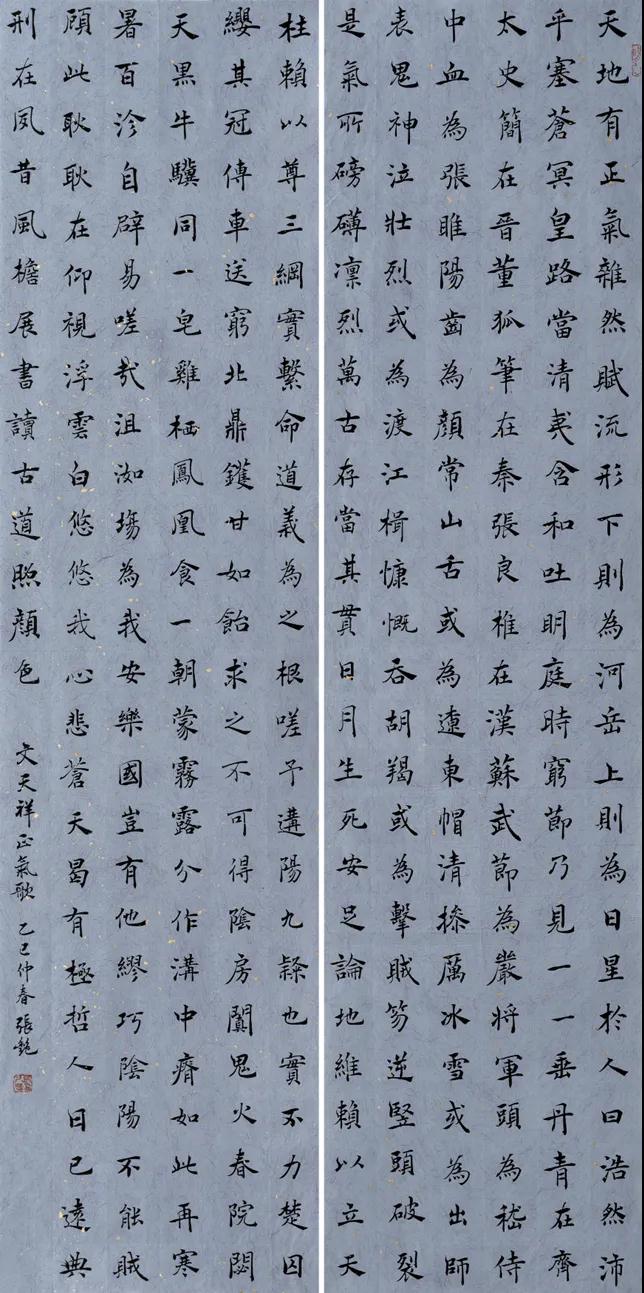 天地有正氣雜然賦流形下則為河岳上則為日星於人曰浩然沛
乎塞蒼冥皇路當清夷含和吐明庭時窮節乃見一一垂丹青在齊
太史簡在晉董狐筆在秦張良椎在漢蘇武節為嚴將軍頭為嵇侍
中血為張睢陽齒為顏常山舌或為遼東帽清操厲冰雪或為出師
表鬼神泣壯烈或為渡江楫慷慨吞胡羯或為擊賊笏逆豎頭破裂
是氣所磅礴凜烈萬古存當其貫日月生死安足論地維賴以立天
柱賴以尊三綱實繫命道義為之根嗟予遘陽九隸也實不力楚囚
纓其冠傳車送窮北鼎鑊甘如飴求之不可得陰房闐鬼火春院閟
天黑牛驥同一皂雞栖鳳凰食一朝蒙霧露分作溝中瘠如此再寒
暑百沴自辟易嗟哉沮洳場為我安樂國豈有他繆巧陰陽不能賊
顧此耿耿在仰視浮雲白悠悠我心悲蒼天曷有極哲人日已遠典
刑在夙昔風檐展書讀古道照顏色 文天祥正氣歌 乙巳仲春張